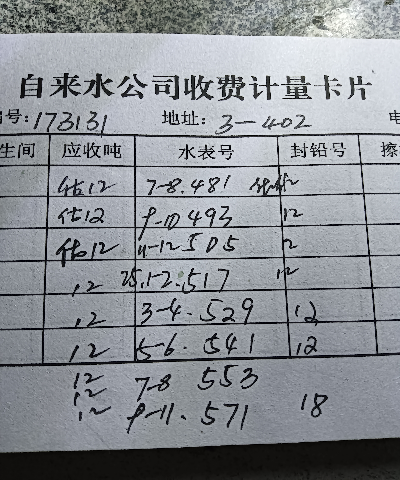 自来水公司收费计量卡片
号:173131 地址: 3-402
生间 应收吨 水表号 封铅号
估12 7-8.481 12
估12 9-10 493 12
估12 11-12 505 12
12 25.1-2.517 12
12 3-4.529 12
12 5-6.541 12
12 7-8 553
12
12 9-11.571 18